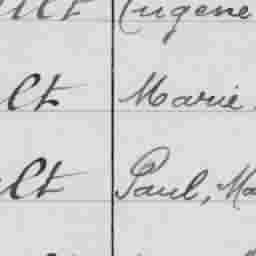 ult Eugène
ult Marie
ult Paul, Ma